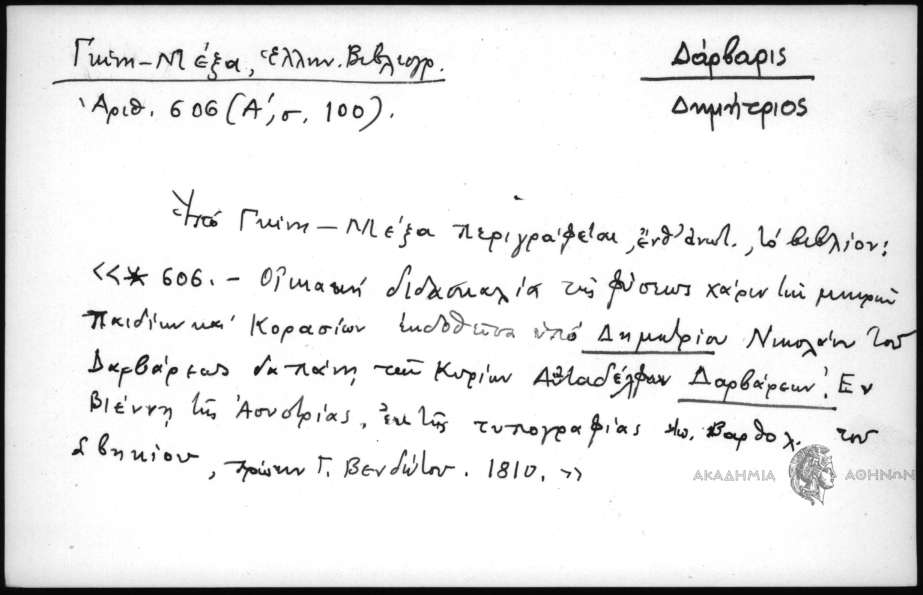 Γκίνη – Μέξα, Ἑλλην. Βιβλιογρ.
Ἀριθ. 606 (Α΄, σ. 100).
Δάρβαρις
Δημήτριος
Ὑπό Γκίνη – Μέξα περιγράφεται, ἔνθ' ἀνωτ., τό βιβλίον:
<<* 606. – Οἰκιακή διδασκαλία τῆς φύσεως χάριν τῶν μικρῶν
παιδίων καί Κορασίων ἐκδοθεῖσα ὑπό Δημητρίου Νικολάου τοῦ
Δαρβάρεως δαπάνη τῶν Κυρίων Αὐταδέλφων Δαρβάρεων. Ἐν
Βιέννη τῆς Ἀουστρίας, ἐκ τῆς τυπογραφίας Βαρθολ. του
Σβηκίου, πρώην Γ. Βενδώτου. 1810. >>
ΑΚΑΔΗΜΙΑ ΑΘΗΝΩΝ